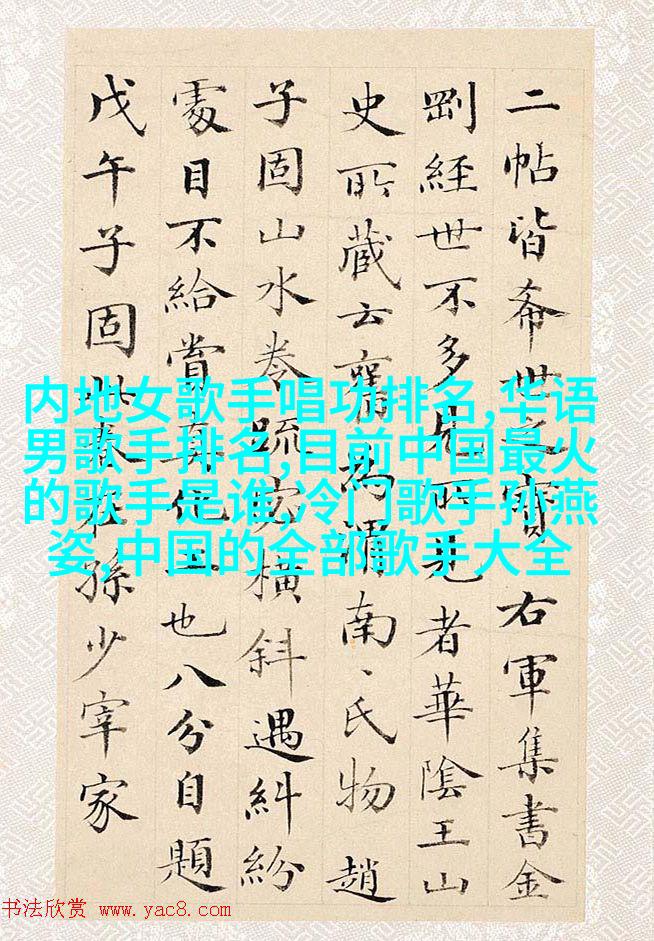 二帖皆希世之寶右軍集書金
剛經世不多見所見者華陰王山
史所藏云舊為渭南、氏物趙
子固山水卷疏密橫斜遇糾紛
處目不給賞真化工也八分自題
戊午子固此卷在孫少宰家
内地女歌手唱功排名,华语
男歌手排名,目前中国最火
的歌手是谁,冷门歌手孙燕
姿,中国的全部歌手大全
书法欣赏 www.yac8.com